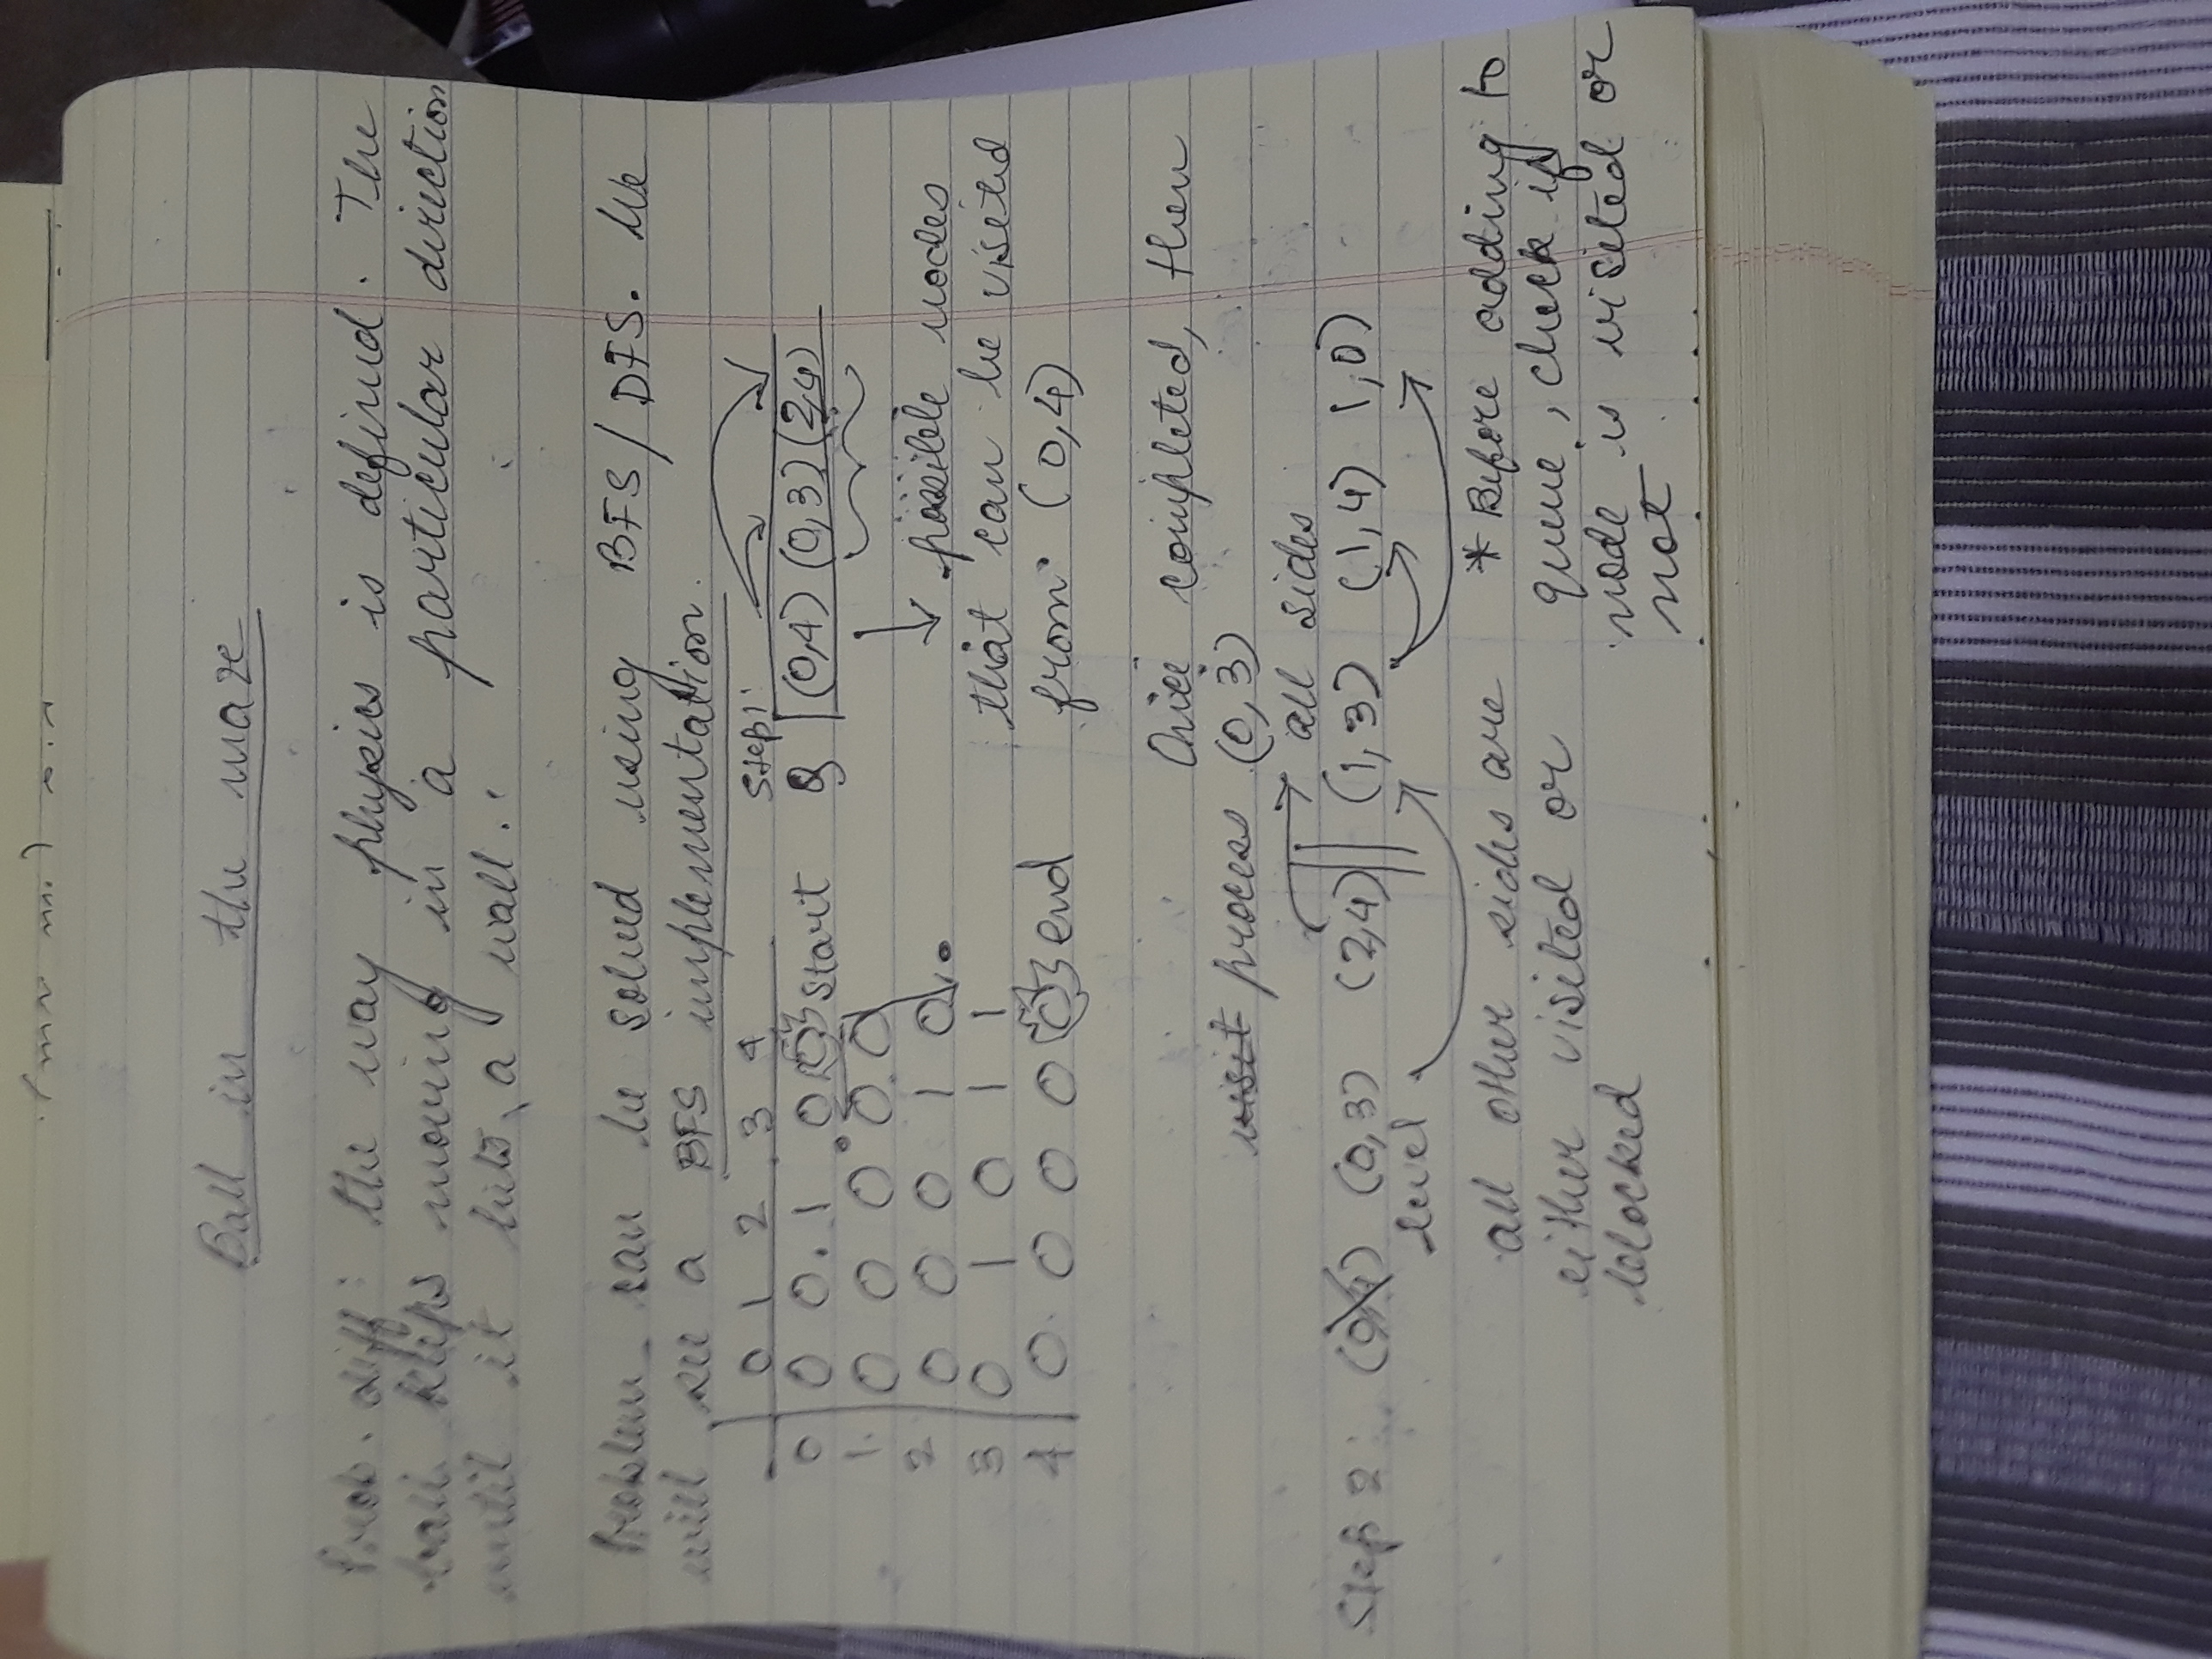 Ball in the maze
Prob. diff: the way physics is defined. The
ball keeps moving in a particular direction
until it hits a wall.
Problem can be solved using BFS/DFS. We
will see a BFS implementation.
0 1 2 3 4
0 0 0 1 0 0 Start
1 0 0 0 0 0
2 0 0 0 1 0
3 0 1 0 1 1
4 0 0 0 0 0 end
Step 1:
Q (0,4) (0,3) (2,4)
possible nodes
that can be visited
from (0,4)
Once completed, then
visit process (0,3)
all sides
Step 2: (0,4) (0,3) (2,4) (1,3) (1,4) 1,0)
level
all other sides are
either visited or
blocked
* Before adding to
queue, check if
node is visited or
not